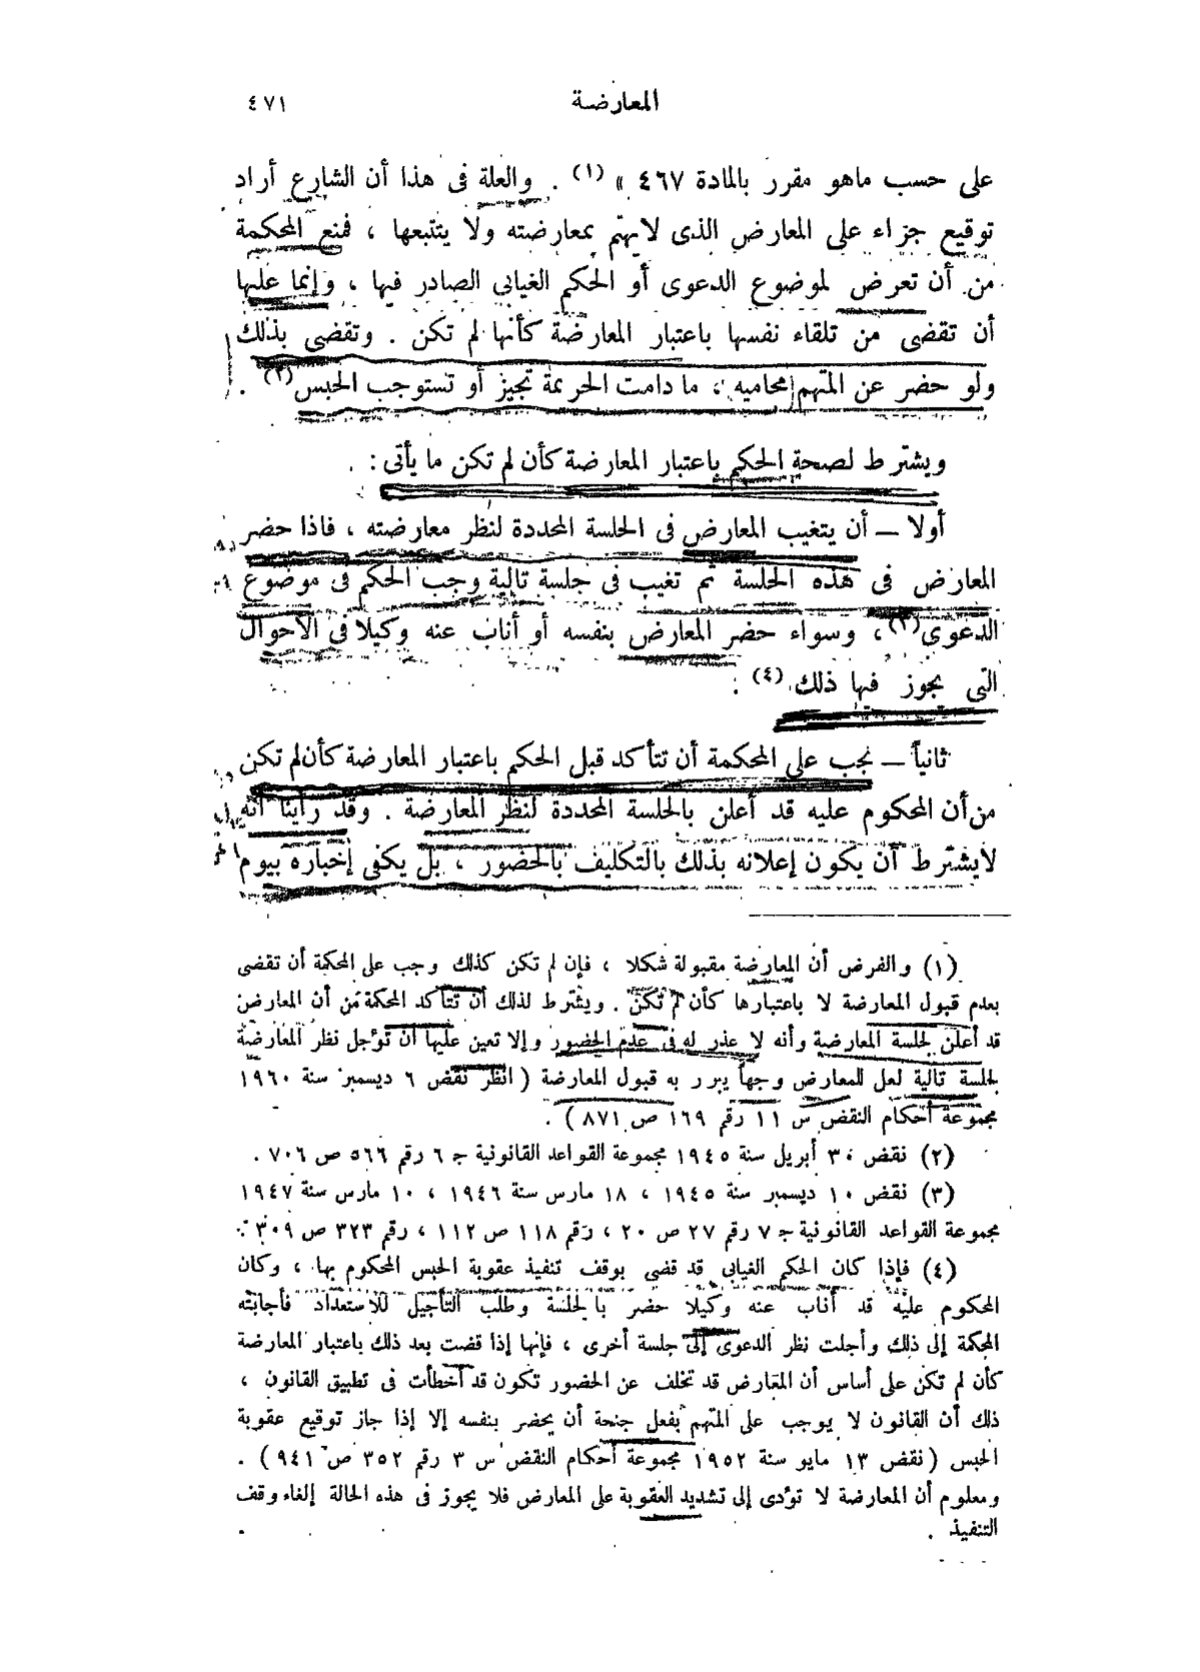 المعارضة ٤٧١
على حسب ماهو مقرر بالمادة ٤٦٧ » (١) . والعلة فى هذا أن الشارع أراد
توقيع جزاء على المعارض الذى لايهتم بمعارضته ولا يتتبعها ، فمنع المحكمة
من أن تعرض لموضوع الدعوى أو الحكم الغيابى الصادر فيها ، وإنما عليها
أن تقضى من تلقاء نفسها باعتبار المعارضة كأنها لم تكن . وتقضى بذلك
ولو حضر عن المتهم محاميه ، ما دامت الجريمة تجيز أو تستوجب الحبس (٢) .
ويشترط لصحة الحكم باعتبار المعارضة كأن لم تكن ما يأتى :
أولا — أن يتغيب المعارض فى الجلسة المحددة لنظر معارضته ، فاذا حضر
المعارض فى هذه الجلسة ثم تغيب فى جلسة تالية وجب الحكم فى موضوع
الدعوى (٣) ، وسواء حضر المعارض بنفسه أو أناب عنه وكيلا فى الأحوال
التى يجوز فيها ذلك (٤) .
ثانياً — يجب على المحكمة أن تتأكد قبل الحكم باعتبار المعارضة كأن لم تكن
من أن المحكوم عليه قد أعلن بالجلسة المحددة لنظر المعارضة . وقد رأينا أنه
لايشترط أن يكون إعلانه بذلك بالتكليف بالحضور ، بل يكفى إخباره بيوم
(١) والفرض أن المعارضة مقبولة شكلا ، فإن لم تكن كذلك وجب على المحكمة أن تقضى
بعدم قبول المعارضة لا باعتبارها كأن لم تكن . ويشترط لذلك أن تتأكد المحكمة من أن المعارض
قد أعلن لجلسة المعارضة وأنه لا عذر له فى عدم الحضور وإلا تعين عليها أن تؤجل نظر المعارضة
لجلسة تالية لعل للمعارض وجهاً يبرر به قبول المعارضة ( انظر نقض ٦ ديسمبر سنة ١٩٦٠
مجموعة أحكام النقض س ١١ رقم ١٦٩ ص ٨٧١ ) .
(٢) نقض ٣٠ أبريل سنة ١٩٤٥ مجموعة القواعد القانونية ج ٦ رقم ٥٦٦ ص ٧٠٦ .
(٣) نقض ١٠ ديسمبر سنة ١٩٤٥ ، ١٨ مارس سنة ١٩٤٦ ، ١٠ مارس سنة ١٩٤٧
مجموعة القواعد القانونية ج ٧ رقم ٢٧ ص ٢٠ ، رقم ١١٨ ص ١١٢ ، رقم ٣٢٣ ص ٣٠٩ .
(٤) فإذا كان الحكم الغيابى قد قضى بوقف تنفيذ عقوبة الحبس المحكوم بها ، وكان
المحكوم عليه قد أناب عنه وكيلا حضر بالجلسة وطلب التأجيل للاستعداد فأجابته
المحكمة إلى ذلك وأجلت نظر الدعوى إلى جلسة أخرى ، فإنها إذا قضت بعد ذلك باعتبار المعارضة
كأن لم تكن على أساس أن المعارض قد تخلف عن الحضور تكون قد أخطأت فى تطبيق القانون ،
ذلك أن القانون لا يوجب على المتهم بفعل جنحة أن يحضر بنفسه إلا إذا جاز توقيع عقوبة
الحبس ( نقض ١٣ مايو سنة ١٩٥٢ مجموعة أحكام النقض س ٣ رقم ٣٥٢ ص ٩٤١ ) .
ومعلوم أن المعارضة لا تؤدى إلى تشديد العقوبة على المعارض فلا يجوز فى هذه الحالة إلغاء وقف
التنفيذ .